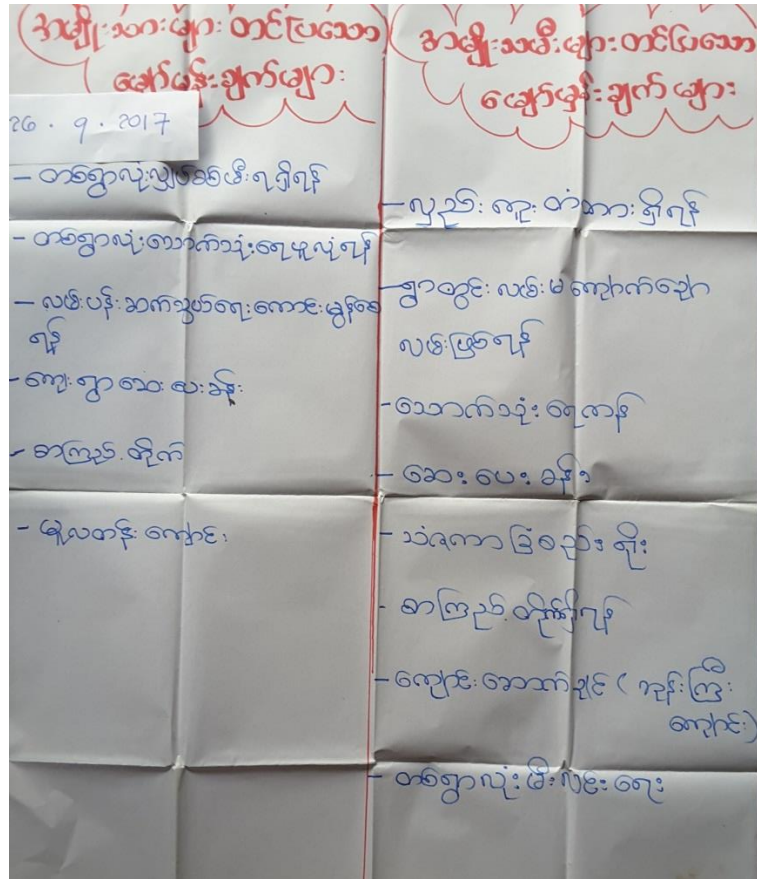 အမျိုးသားများ တင်ပြသော
မျှော်မှန်းချက်များ
26 . 9 . 2017
- တစ်ရွာလုံးလျှပ်စစ်မီးရရှိရန်
- တစ်ရွာလုံးသောက်သုံးရေဖူလုံရန်
- လမ်းပန်းဆက်သွယ်ရေးကောင်းမွန်စေ
ရန်
- ကျေးရွာဆေးပေးခန်း
- စာကြည့်တိုက်
- မူလတန်းကျောင်း
အမျိုးသမီးများတင်ပြသော
မျှော်မှန်းချက်များ
- လှည်းကူးတံတားရှိရန်
- ရွာတွင်းလမ်းမကျောက်ချော
လမ်းဖြစ်ရန်
- သောက်သုံးရေကန်
- ဆေးပေးခန်း
- သံဇကာခြံစည်းရိုး
- စာကြည့်တိုက်ရှိရန်
- ကျောင်းဆောက်ချင် (ဘုန်းကြီး
ကျောင်း)
- တစ်ရွာလုံးမီးလင်းရေး